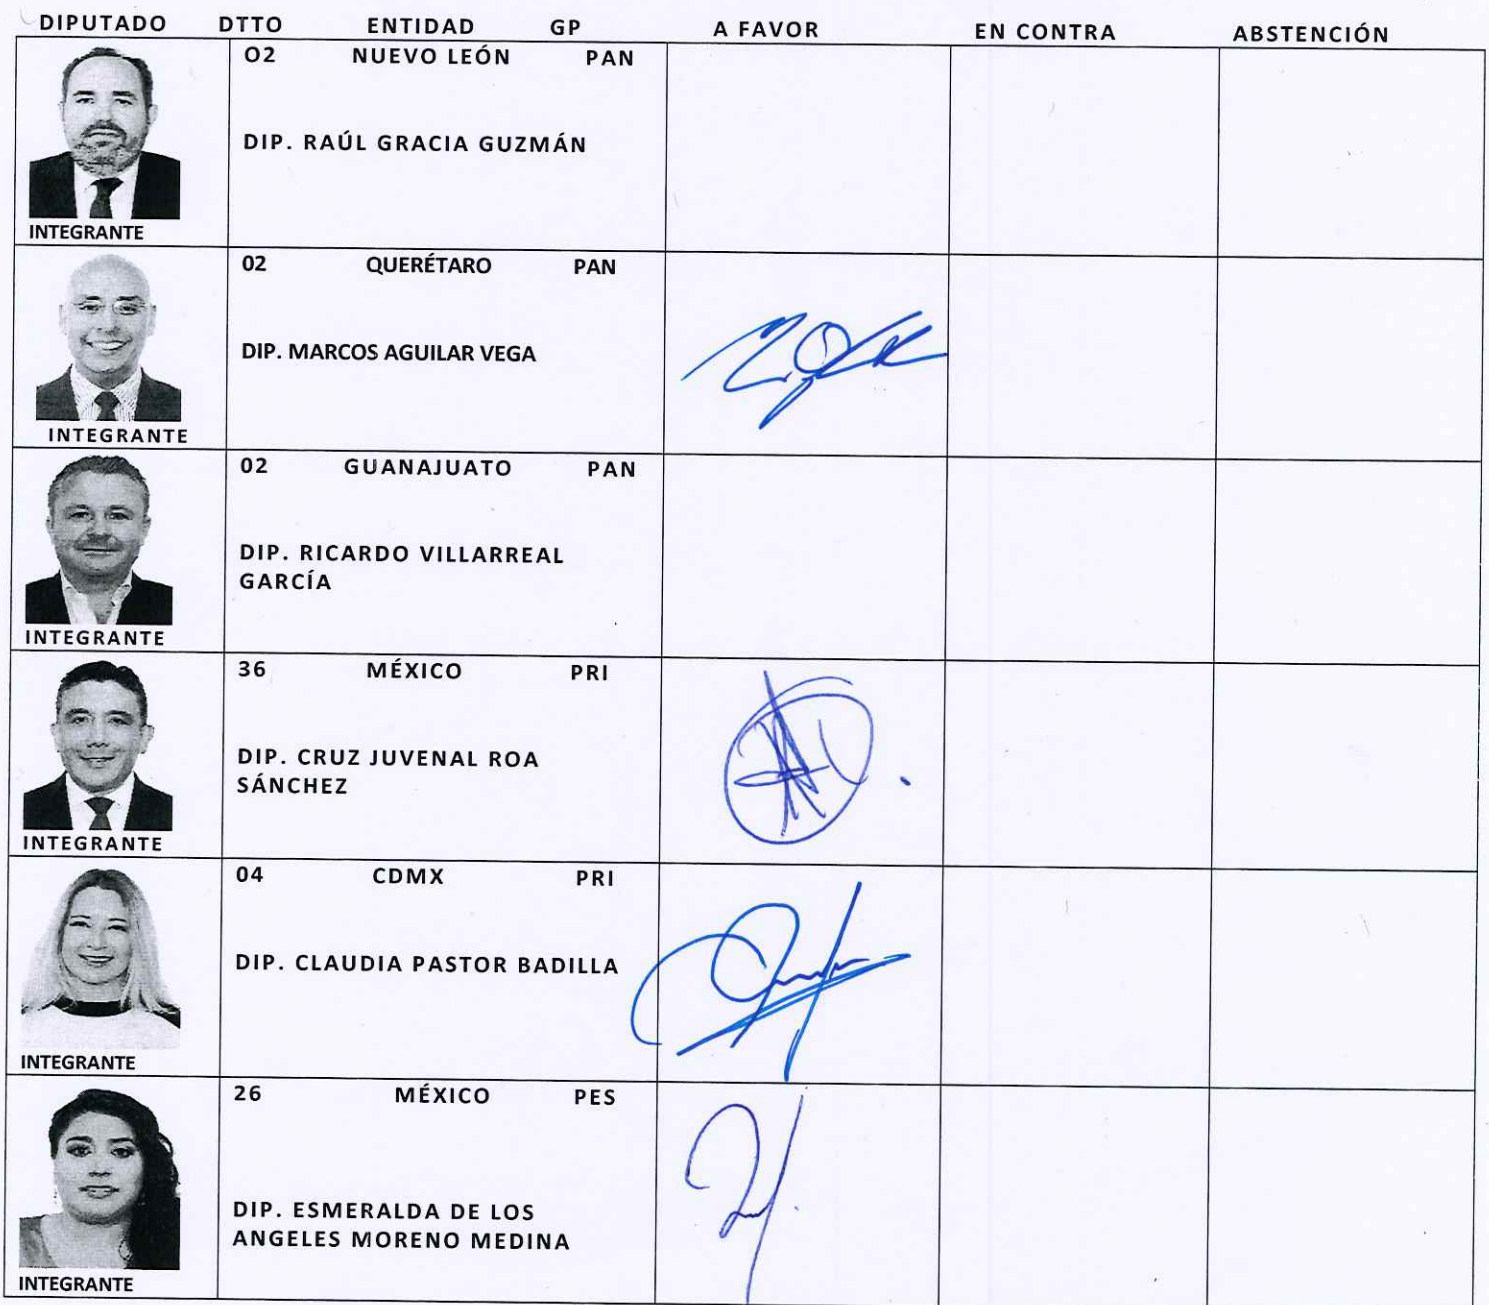 DIPUTADO DTTO ENTIDAD GP A FAVOR EN CONTRA ABSTENCIÓN
O2 NUEVO LEÓN PAN
DIP. RAÚL GRACIA GUZMÁN
INTEGRANTE
02 QUERÉTARO PAN
DIP. MARCOS AGUILAR VEGA
INTEGRANTE
02 GUANAJUATO PAN
DIP. RICARDO VILLARREAL
GARCÍA
INTEGRANTE
36 MÉXICO PRI
DIP. CRUZ JUVENAL ROA
SÁNCHEZ
INTEGRANTE
04 CDMX PRI
DIP. CLAUDIA PASTOR BADILLA
INTEGRANTE
26 MÉXICO PES
DIP. ESMERALDA DE LOS
ANGELES MORENO MEDINA
INTEGRANTE